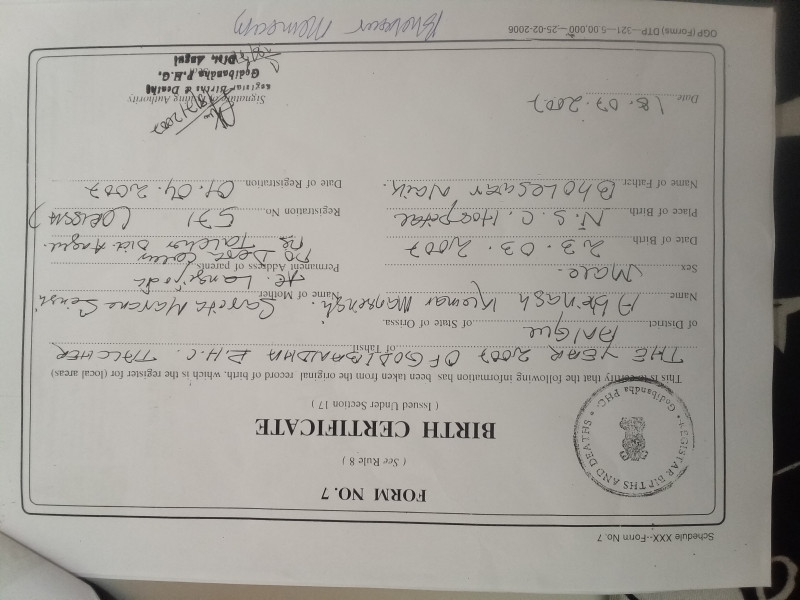 Schedule XXX--Form No. 7
REGISTAR BIRTHS AND DEATHS
Godibandha PHC
FORM NO. 7
( See Rule 8 )
BIRTH CERTIFICATE
( Issued Under Section 17 )
This is to certify that the following information has been taken from the original record of birth, which is the register for (local areas)
THE YEAR 2007 OF GODIBANDHA P.H.C. TALCHER of Tahsil
of District ANGUL of State of Orissa.
Name Abinash Kumar Mansingh. Name of Mother Sarita
Sex Male. Permanent Address of parents At. Langijodi
Date of Birth 23.03.2007 PO Dera
Ps Talcher Dist Angul.
Place of Birth N.S.C. Hospital Registration No 571 (ORISSA)
Name of Father BHOLESWAR Naik. Date of Registration 01.04.2007
Date 18.07.2007
18/7/2007
Signature of Issuing Authority
Registrar Births & Deaths
Godibandha P.H.C.
Dist. Angul
OGP (Forms) DTP--321--5,00,000--25-02-2006